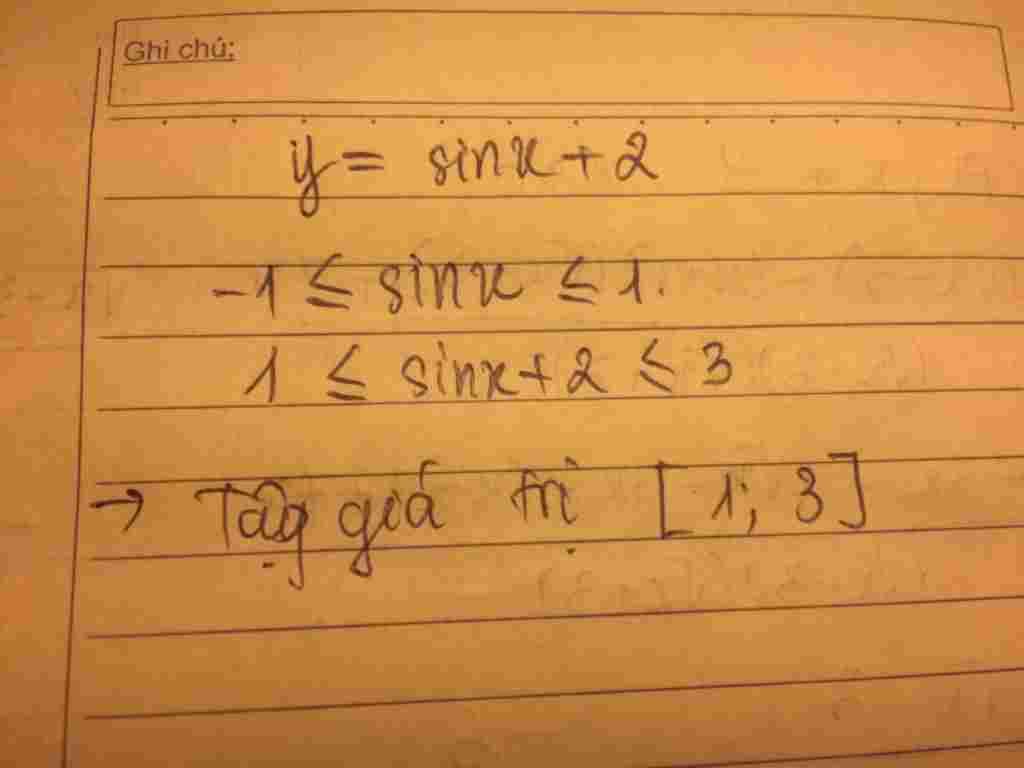 Ghi chú:
y = sinx + 2
-1 ≤ sinx ≤ 1.
1 ≤ sinx + 2 ≤ 3
→ Tập giá trị [1; 3]